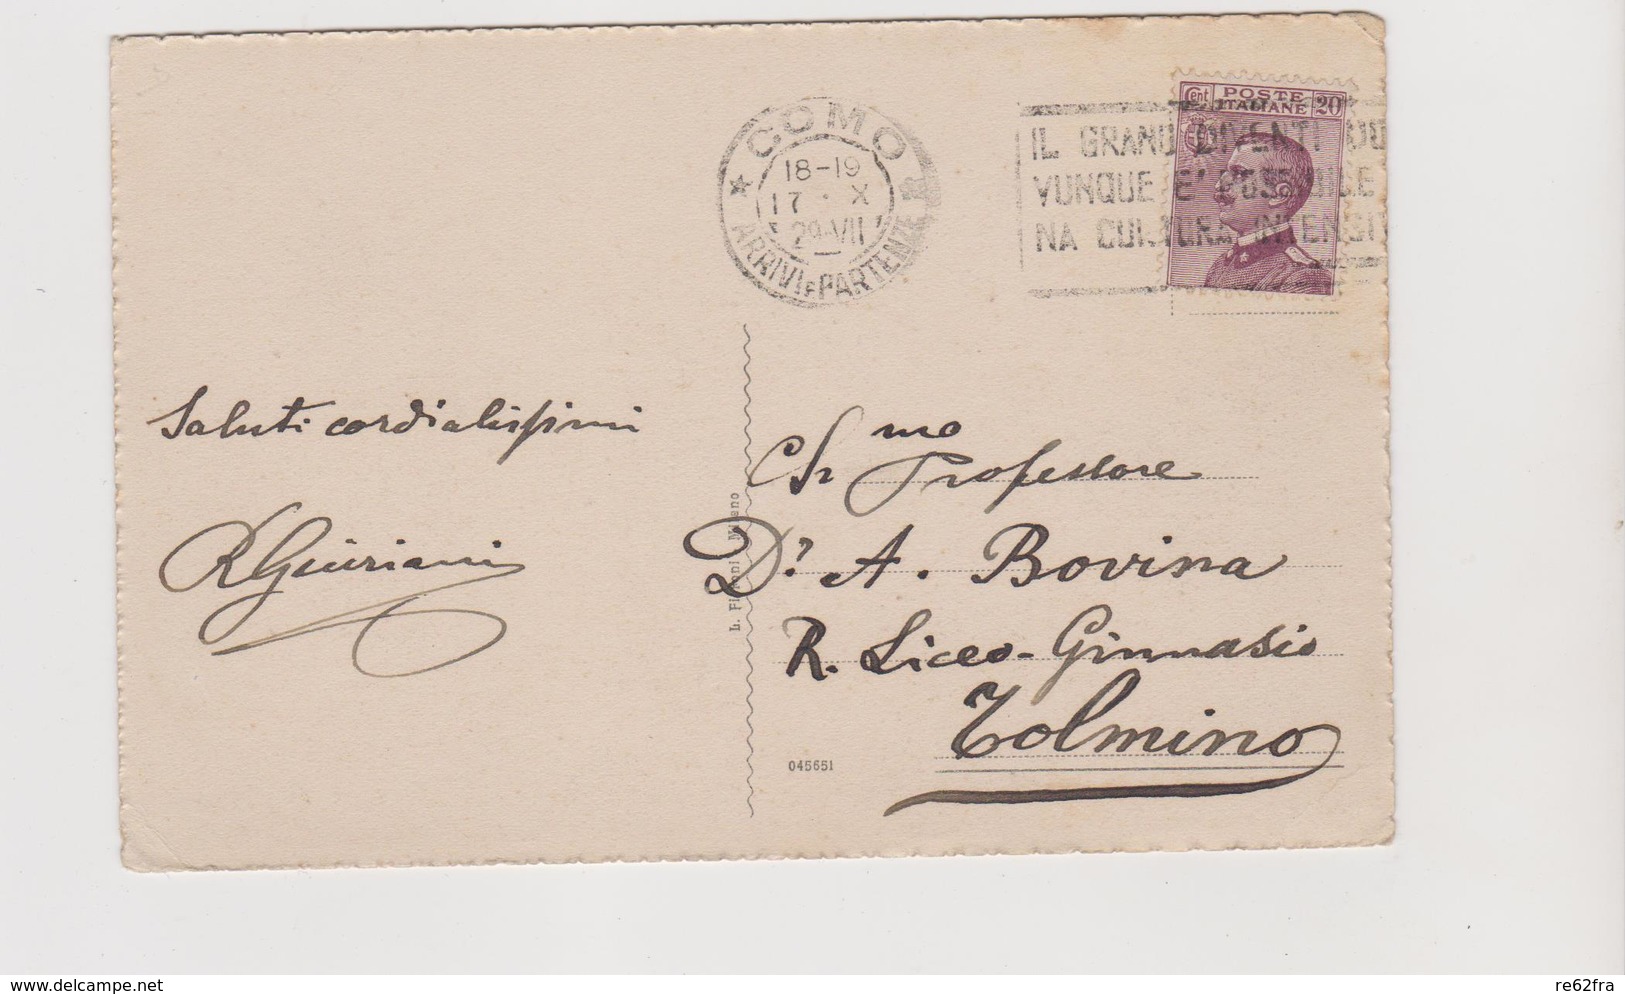 COMO
18-19
17 · X
29 VII
ARRIVI E PARTENZE
Cent POSTE ITALIANE 20
IL GRANO DIVENTI
VUNQUE E' POSSIBILE
NA CULTURA INTENSI
Saluti cordialissimi
RGiuriani
Ch mo Professore
Dr. A. Bovina
R. Liceo-Ginnasio
Tolmino
Milano
045651
www.delcampe.net
re62fra